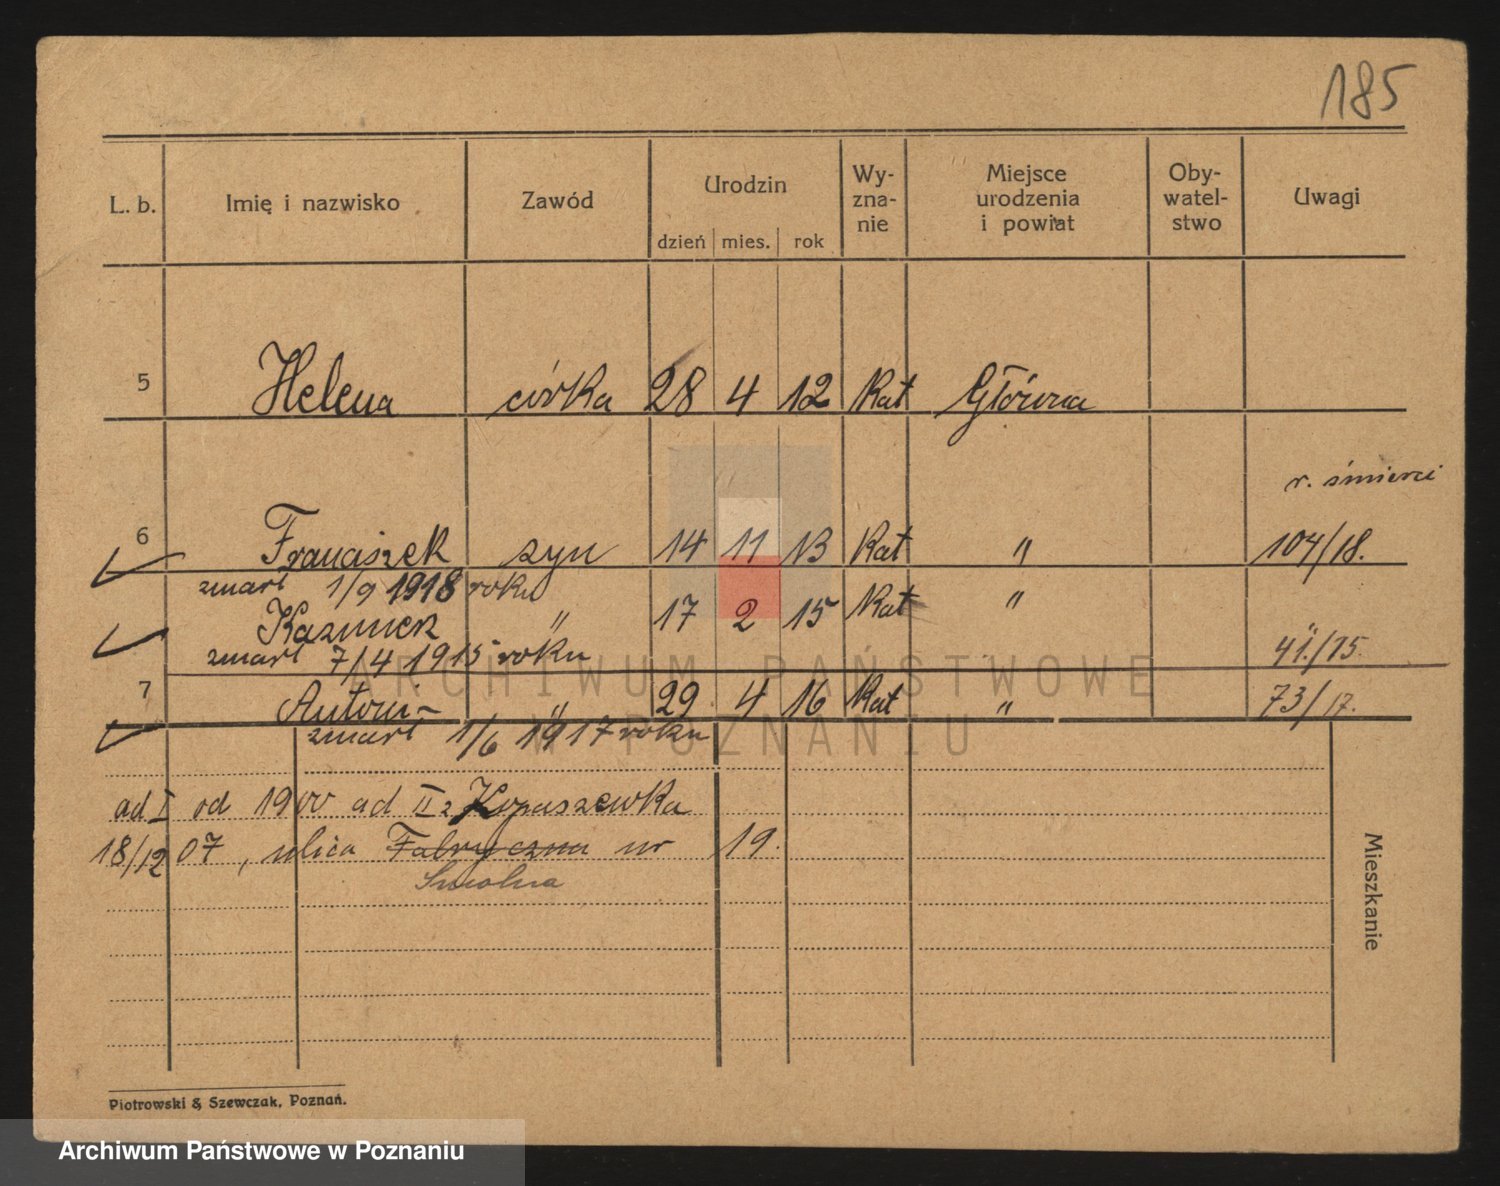 185
L. b. Imię i nazwisko Zawód Urodzin Wy-zna-nie Miejsce urodzenia i powiat Oby-watel-stwo Uwagi
dzień mies. rok
5 Helena córka 28 4 12 Kat Główna
r. śmierci
6 Franciszek syn 14 11 13 Kat " 104/18.
zmarł 1/9 1918 roku
Kazimierz " 17 2 15 Kat "
zmarł 7/4 1915 roku 41/15.
7 Antoni " 29 4 16 Kat " 73/17.
zmarł 1/6 1917 roku
ad I od 1900 ad II z Kopaszewka
18/12 07, ulica Fabryczna nr 19.
Smolna
Mieszkanie
Piotrowski & Szewczak, Poznań.
ARCHIWUM PAŃSTWOWE
W POZNANIU
Archiwum Państwowe w Poznaniu